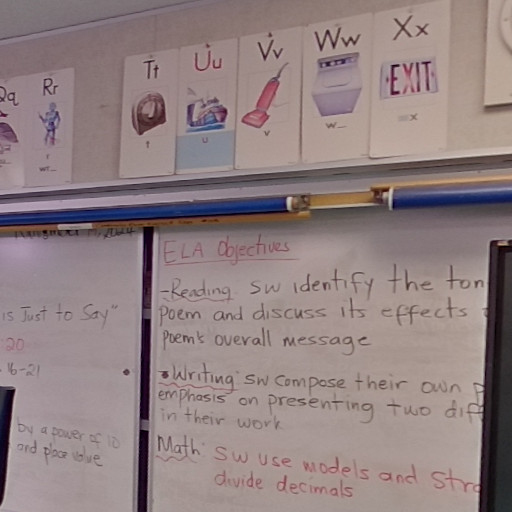 Qq
Rr
r
wr_
Tt
t
Uu
u
Vv
v
Ww
w_
Xx
EXIT
x
is Just to Say"
20
16-21
by a power of 10
and place value
ELA Objectives
-Reading SW identify the ton
poem and discuss its effects
poem's overall message
Writing SW compose their own p
emphasis on presenting two diff
in their work
Math SW use models and stra
divide decimals